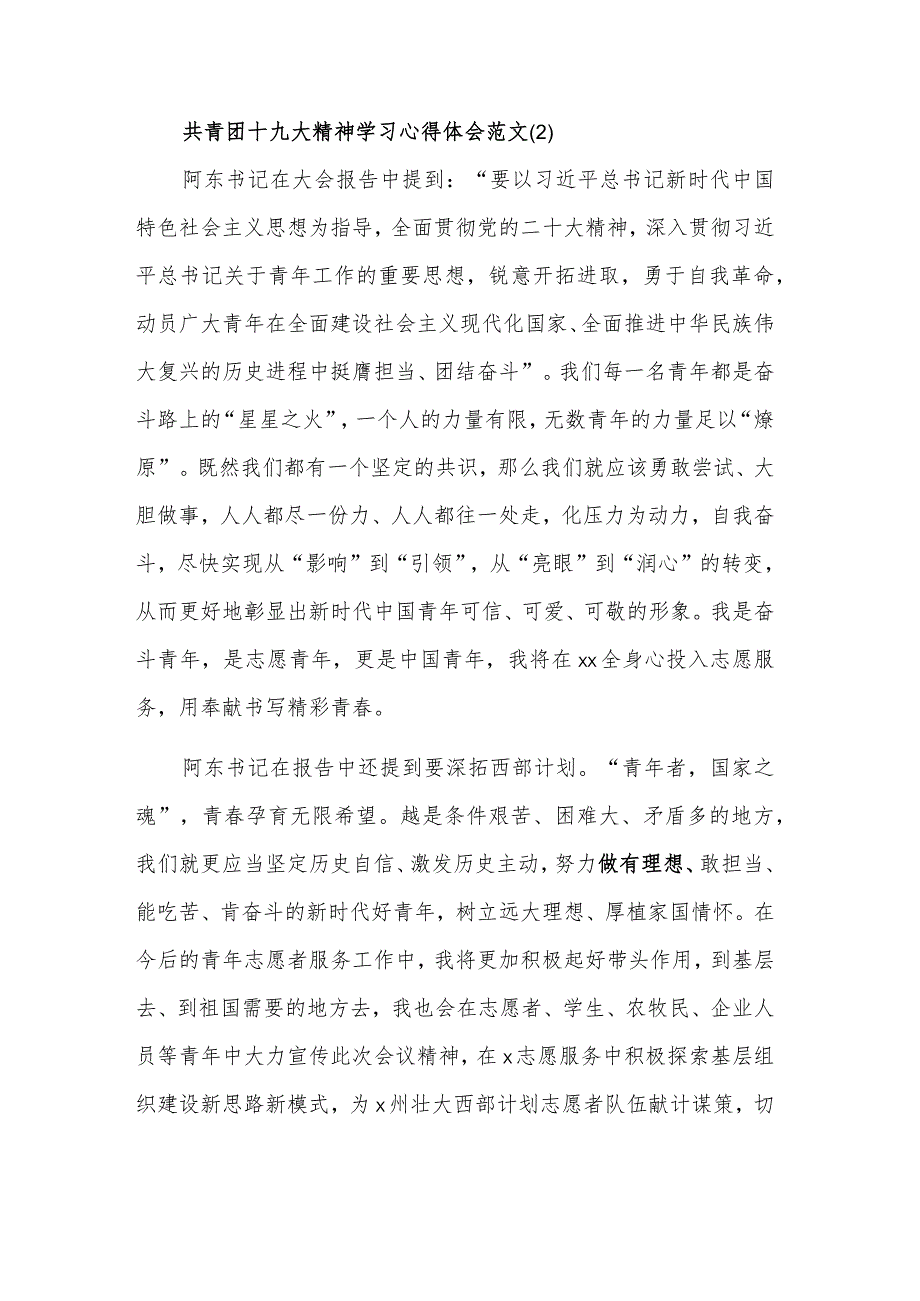 共青团十九大精神学习心得体会范文(2)
阿东书记在大会报告中提到：“要以习近平总书记新时代中国
特色社会主义思想为指导，全面贯彻党的二十大精神，深入贯彻习近
平总书记关于青年工作的重要思想，锐意开拓进取，勇于自我革命，
动员广大青年在全面建设社会主义现代化国家、全面推进中华民族伟
大复兴的历史进程中挺膺担当、团结奋斗”。我们每一名青年都是奋
斗路上的“星星之火”，一个人的力量有限，无数青年的力量足以“燎
原”。既然我们都有一个坚定的共识，那么我们就应该勇敢尝试、大
胆做事，人人都尽一份力、人人都往一处走，化压力为动力，自我奋
斗，尽快实现从“影响”到“引领”，从“亮眼”到“润心”的转变，
从而更好地彰显出新时代中国青年可信、可爱、可敬的形象。我是奋
斗青年，是志愿青年，更是中国青年，我将在xx全身心投入志愿服
务，用奉献书写精彩青春。
阿东书记在报告中还提到要深拓西部计划。“青年者，国家之
魂”，青春孕育无限希望。越是条件艰苦、困难大、矛盾多的地方，
我们就更应当坚定历史自信、激发历史主动，努力做有理想、敢担当、
能吃苦、肯奋斗的新时代好青年，树立远大理想、厚植家国情怀。在
今后的青年志愿者服务工作中，我将更加积极起好带头作用，到基层
去、到祖国需要的地方去，我也会在志愿者、学生、农牧民、企业人
员等青年中大力宣传此次会议精神，在x志愿服务中积极探索基层组
织建设新思路新模式，为x州壮大西部计划志愿者队伍献计谋策，切